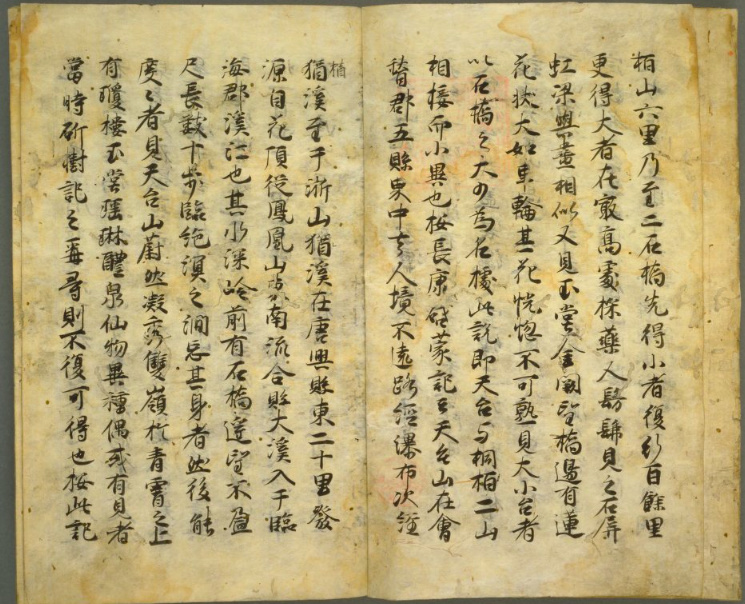 栢山六里乃至二石橋先得小者復行百餘里
更得大者在㝡高處採藥人髣髴見之石屏
虹梁與畫相似又見玉堂金闕望橋邊有蓮
花状大如車輪其花恍惚不可熟見大小台者
以石橋之大少為名據此說即天台与桐栢二山
相接而小異也按長康啓蒙記云天台山在會
稽郡五縣界中去人境不遠路經瀑布次經
楢
猶溪至于浙山猶溪在唐興縣東二十里發
源自花頂從鳳凰山東南流合縣大溪入于臨
海郡溪江也其水深冷前有石橋遙望不盈
尺長數十步臨絶溟之澗忘其身者然後能
度々者見天台山蔚然凝秀雙嶺於青霄之上
有瓊樓玉堂瑶琳醴泉仙物異種偶或有見者
當時斫樹記之再尋則不復可得也按此記